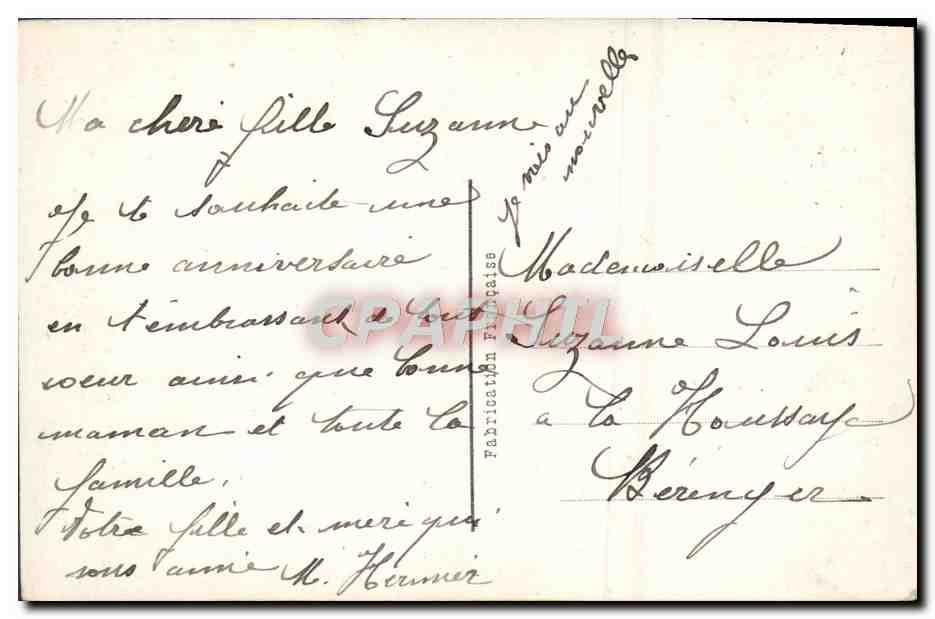 Ma chere fille Suzanne
Je te souhaite une
bonne anniversaire
en t'embrassant de tout
coeur ainsi que bonne
maman et toute la
famille.
Votre fille et mere qui
vous aime M. Hermier
Je vois au
nouvelle
Mademoiselle
Suzanne Louis
a la Houssaye
Bérenger
Fabrication Française
CPAPHIL